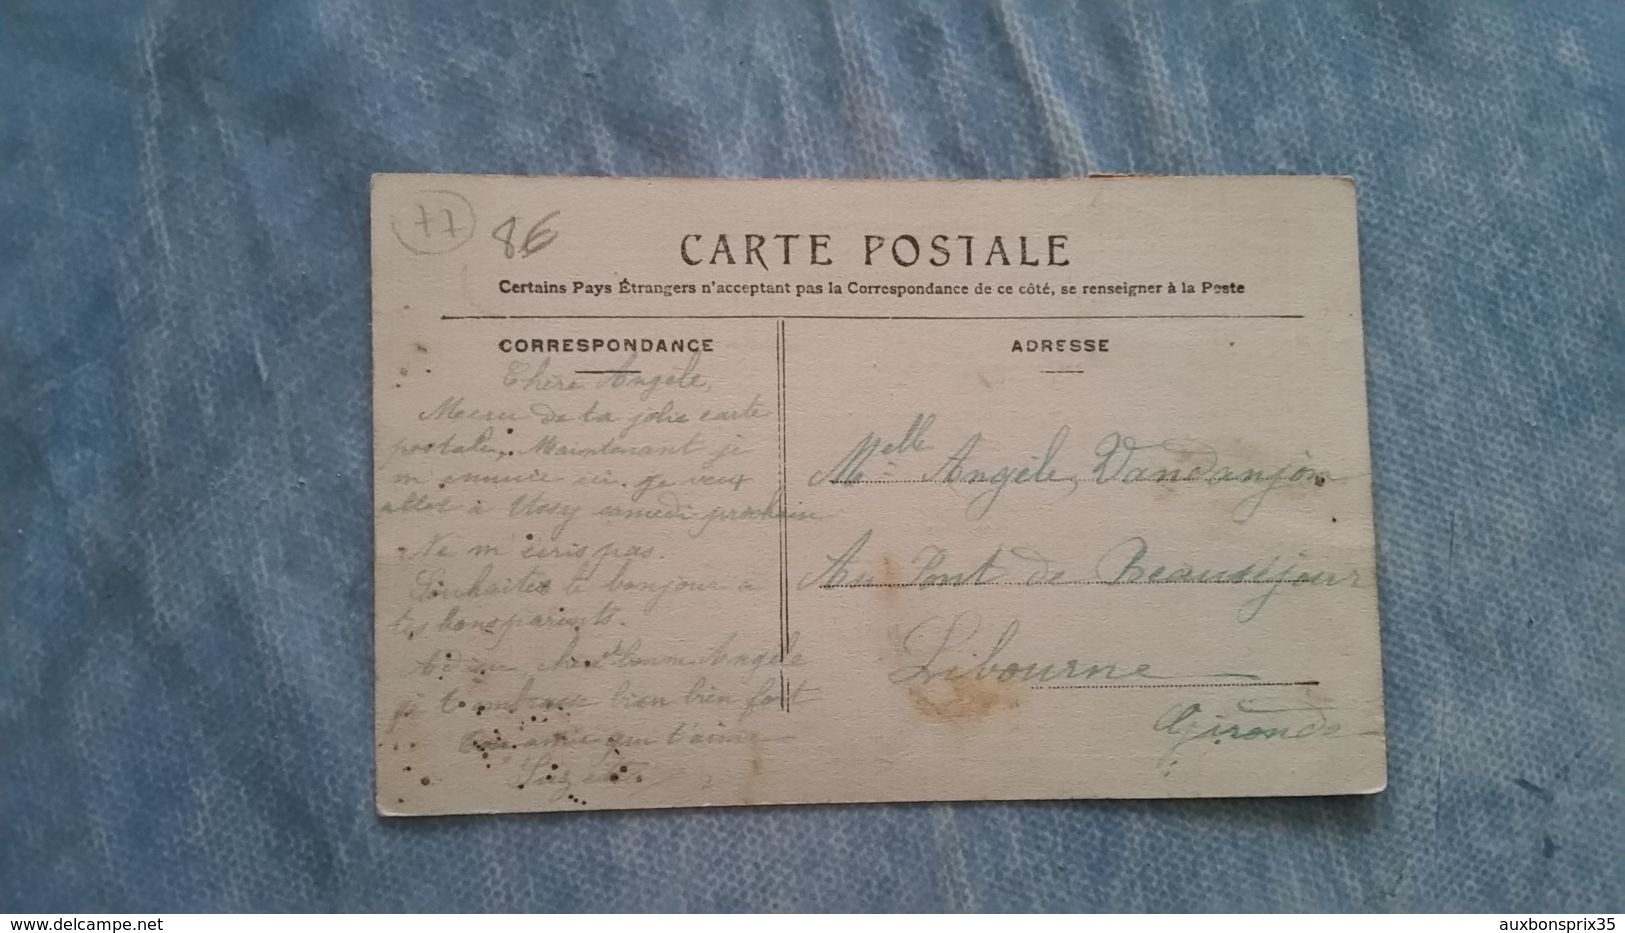 77
86
CARTE POSTALE
Certains Pays Étrangers n'acceptant pas la Correspondance de ce côté, se renseigner à la Poste
CORRESPONDANCE
Chère Angèle,
Merci de ta jolie carte
postale, Maintenant je
m'ennuie ici. Je veux
aller à Ussy samedi prochain
Ne m'écris pas.
Souhaites le bonjour a
tes bons parents.
Adieu, chère bonne Angèle
je t'embrasse bien bien fort
Ton amie qui t'aime
ADRESSE
Melle Angèle Vandanjon
Au Pont de Beauséjour
Libourne
Gironde
www.delcampe.net
auxbonsprix35